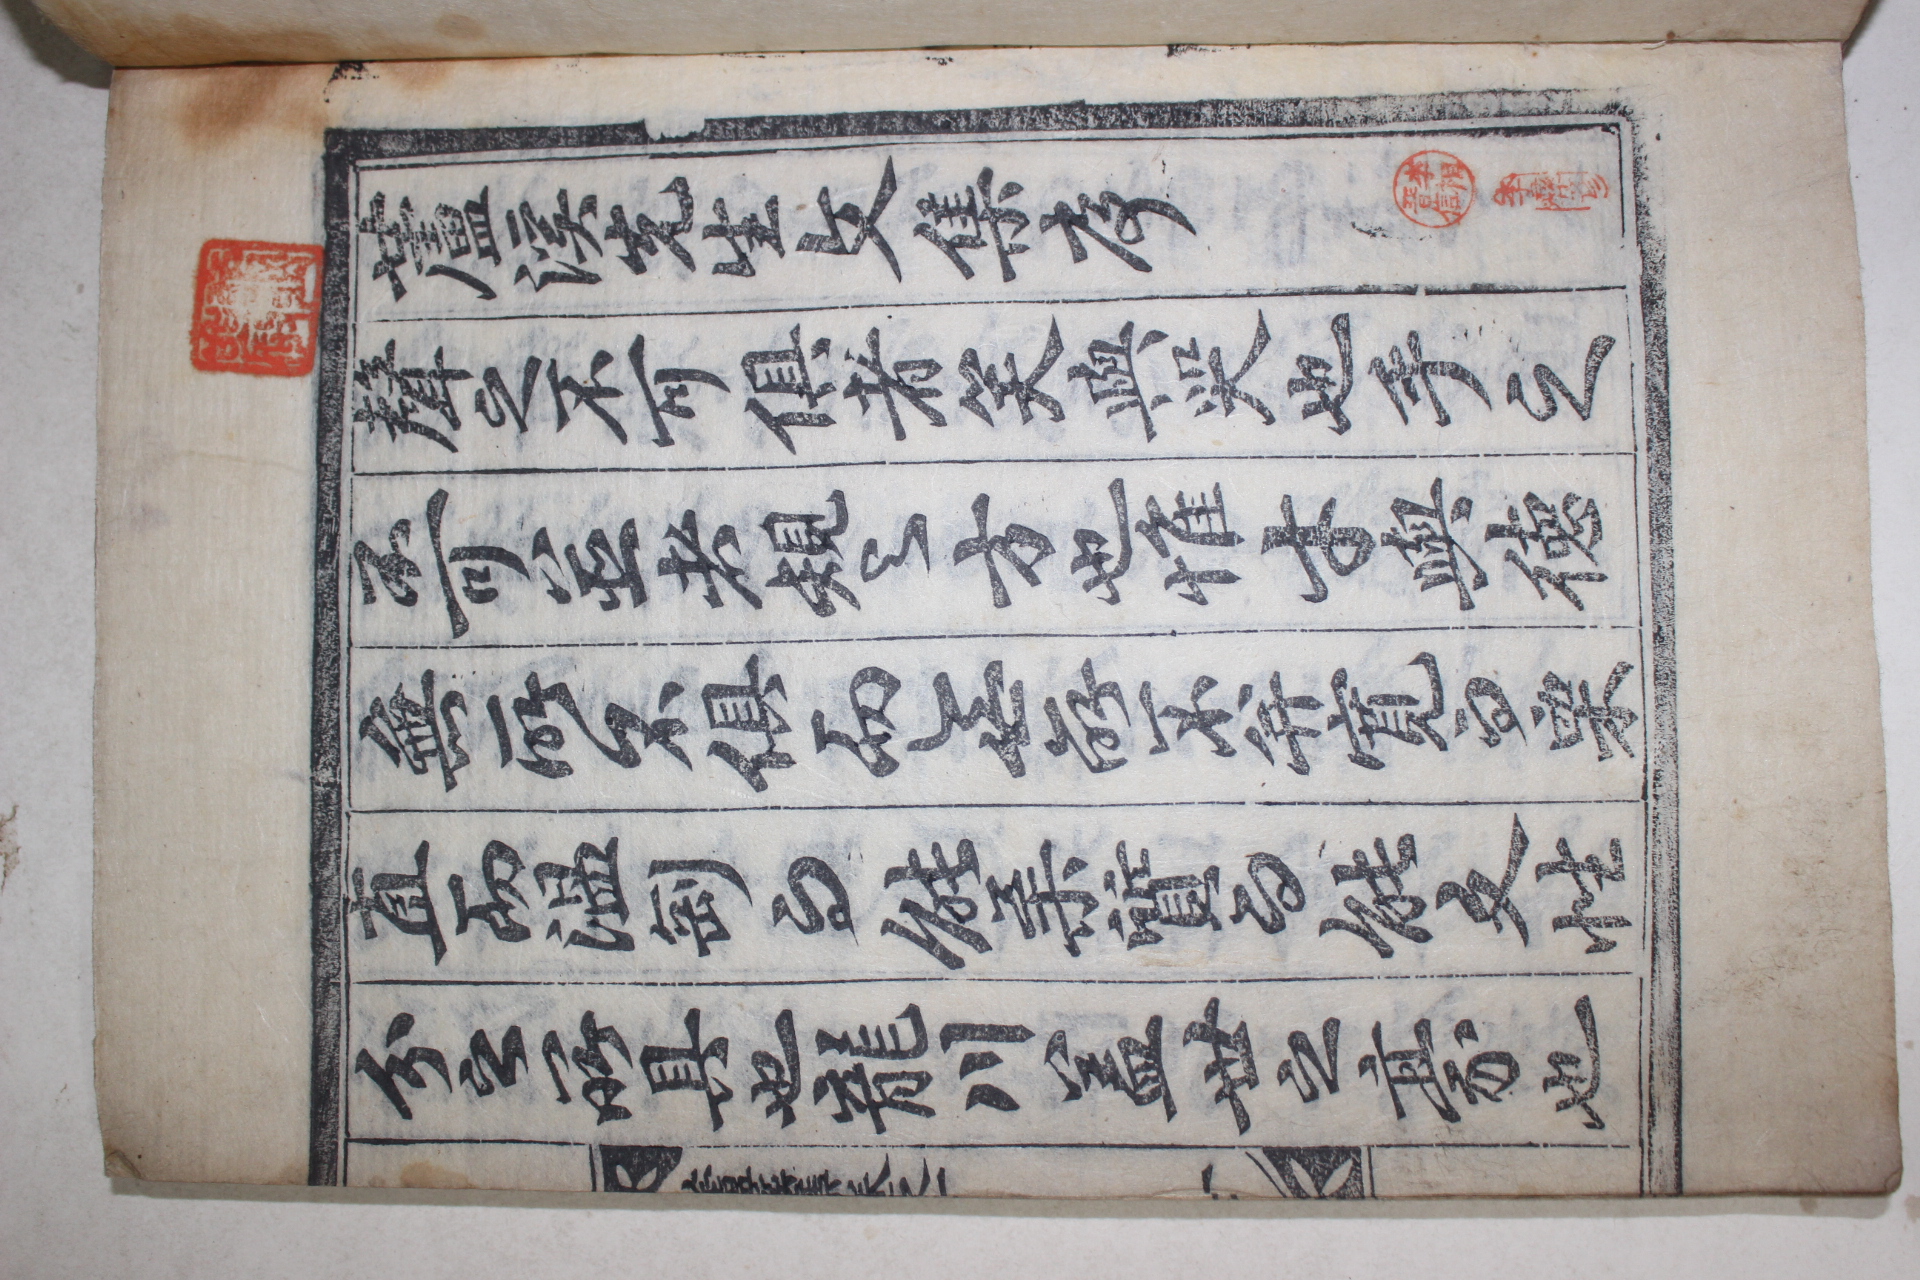 蘆溪先生文集序
聲之不可俱者笑與哭也手之
不可並者規之方也惟才與德
無所不俱而無所不并寬而栗
直而溫剛而能柔質而能文性
分之所具也龍川蓋世之豪也
李相
晉信